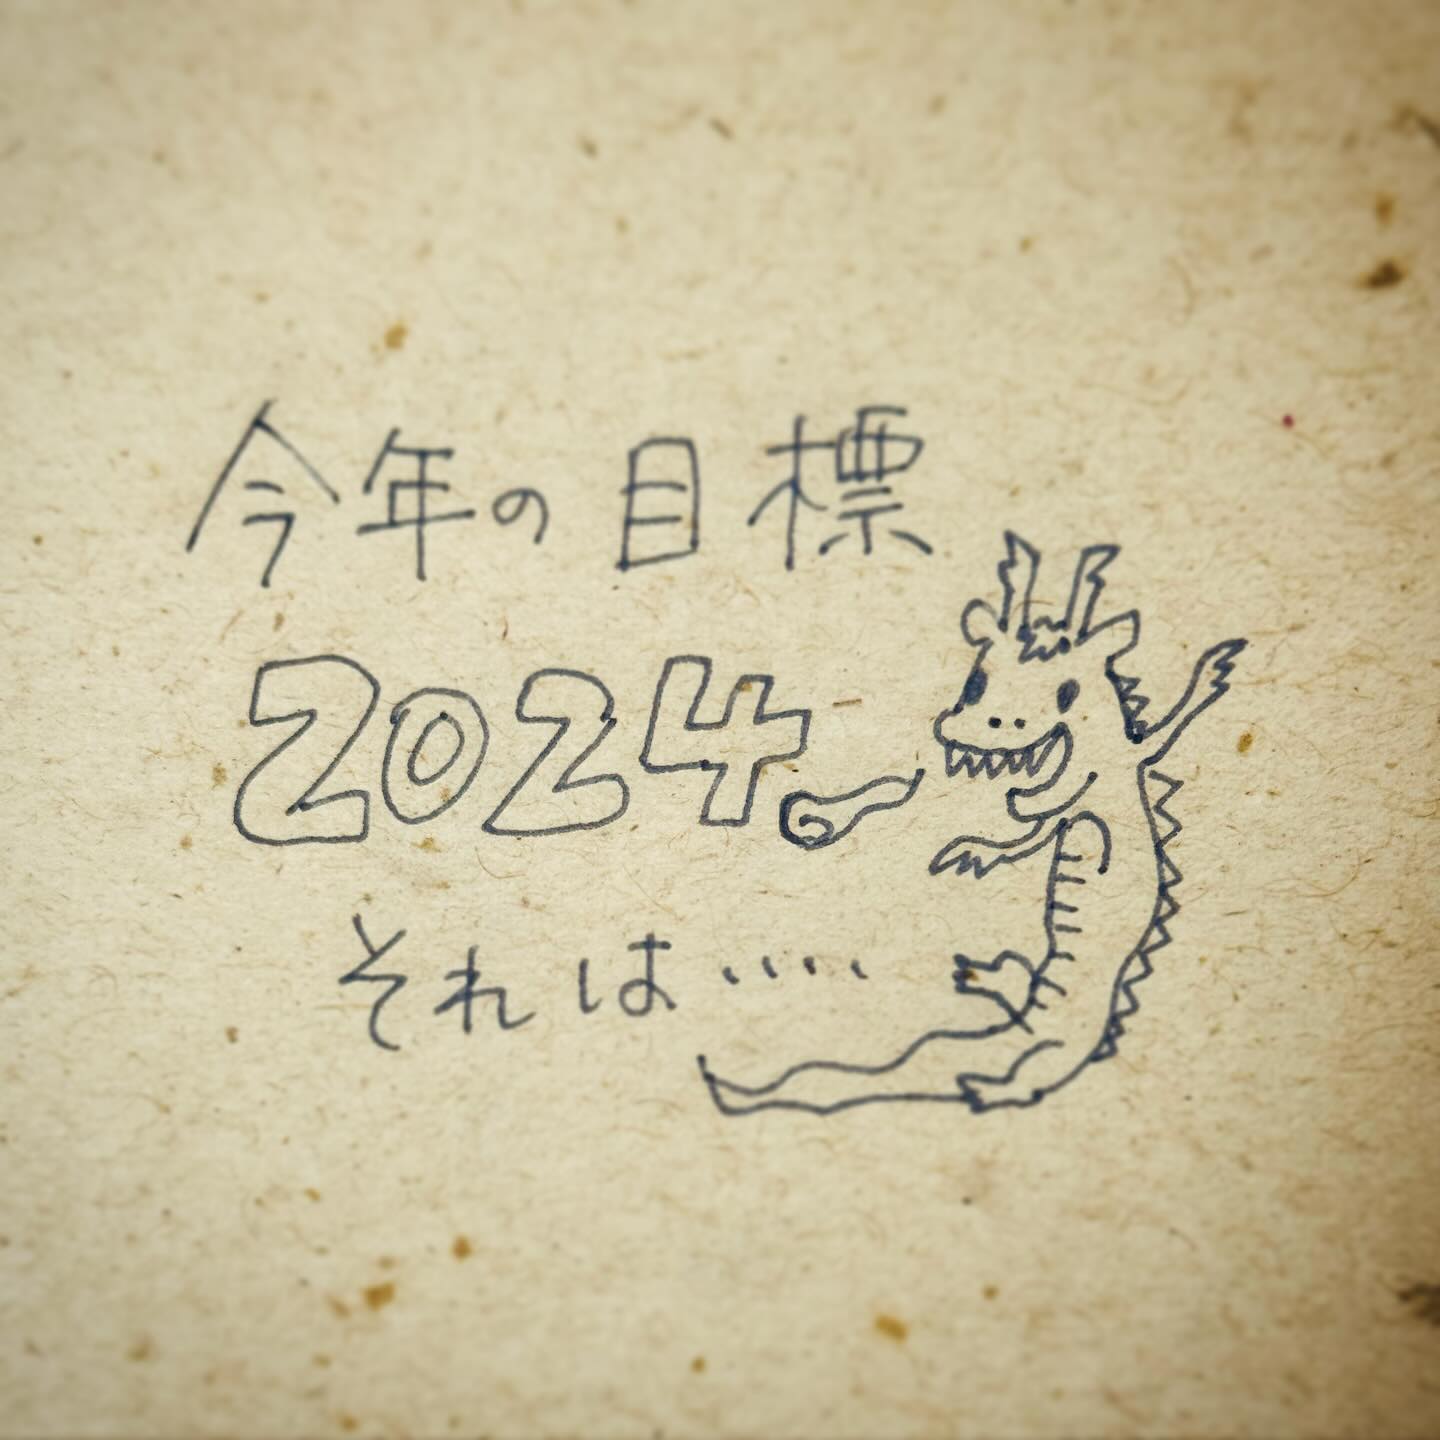 今年の目標
2024
それは‥‥